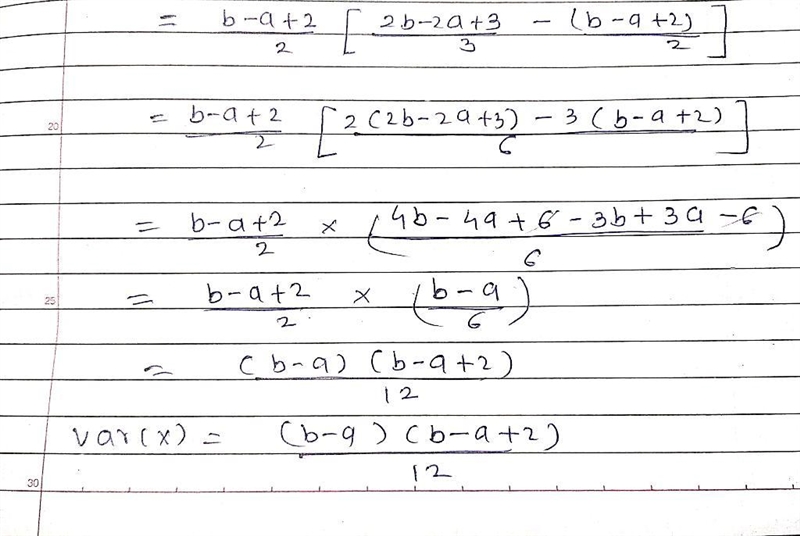 = b-a+2/2 [ 2b-2a+3/3 - (b-a+2)/2 ]
20
= b-a+2/2 [ 2(2b-2a+3) - 3(b-a+2)/6 ]
= b-a+2/2 × ( 4b-4a+6-3b+3a-6/6 )
25
= b-a+2/2 × ( b-a/6 )
= (b-a)(b-a+2)/12
var(x) = (b-a)(b-a+2)/12
30